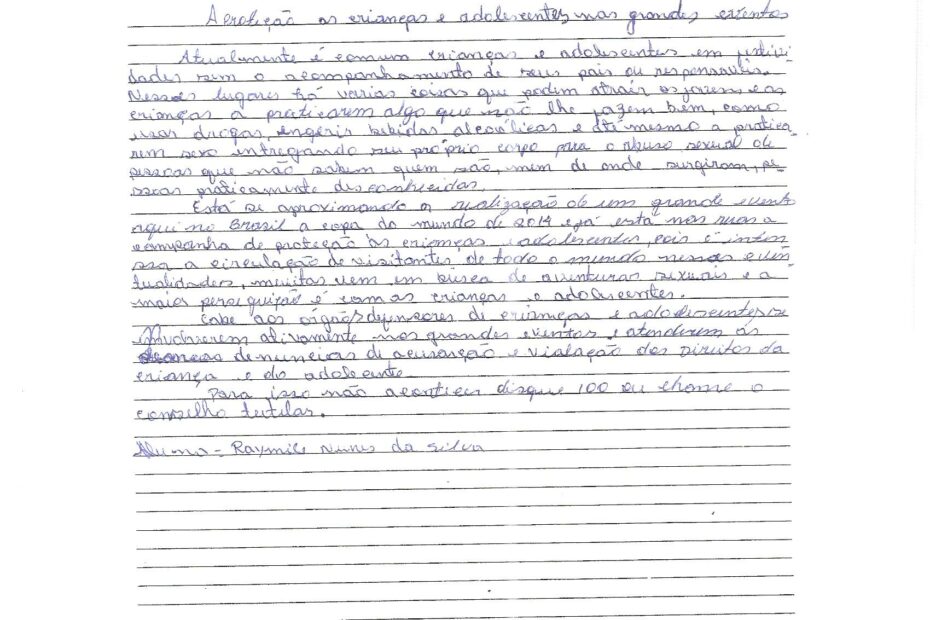 A proteção as crianças e adolescentes nas grandes eventos
Atualmente é comum crianças e adolescentes em festivi
dades sem o acompanhamento de seus pais ou responsaveis.
Nesses lugares há varias coisas que podem atrair os jovens e as
crianças a praticarem algo que não lhe fazem bem, como
usar drogas, engerir bebidas alcoólicas e até mesmo a pratica
rem sexo entregando seu próprio corpo para o abuso sexual de
pessoas que não sabem quem são, nem de onde surgiram, pe
ssoas praticamente desconhecidas.
Está se aproximando a realização de um grande event
aqui no Brasil a copa do mundo de 2014 e já está nas ruas a
companha de proteção às crianças e adolescentes, pois é inten
ssa a circulação de visitantes de todo o mundo nessas even
tualidades, muitas vem em busca de aventuras sexuais e a
maior perseguição é com as crianças e adolescentes.
Cabe aos órgãos defensores de crianças e adolescentes se
envolverem ativamente nos grandes eventos e atenderem ás
denuncias de acusação e violação dos Direitos da
criança e do adolecente
Para isso não acontecer disque 100 ou chame o
conselho tutelar.
Aluna - Raymile nunes da silva